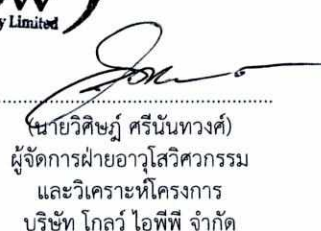 y Limited
(นายวิศิษฎ์ ศรีนันทวงศ์)
ผู้จัดการฝ่ายอาวุโสวิศวกรรม
และวิเคราะห์โครงการ
บริษัท โกลว์ ไอพีพี จำกัด